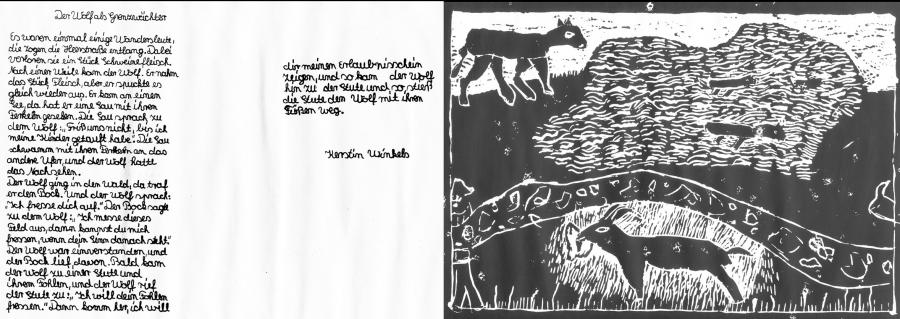 Der Wolf als Grenzwächter
Es waren einmal einige Wandersleute,
die zogen die Heerstraße entlang. Dabei
verloren sie ein Stück Schweinefleisch.
Nach einer Weile kam der Wolf. Er nahm
das Stück Fleisch, aber er spuckte es
gleich wieder aus. Er kam an einen
See, da hat er eine Sau mit ihren
Ferkeln gesehen. Die Sau sprach zu
dem Wolf: „Friß uns nicht, bis ich
meine Kinder getauft habe". Die Sau
schwamm mit ihren Ferkeln an das
andere Ufer, und der Wolf hatte
das Nachsehen.
Der Wolf ging in den Wald, da traf
er den Bock. Und der Wolf sprach:
"Ich fresse dich auf." Der Bock sagte
zu dem Wolf: „Ich messe dieses
Feld aus, dann kannst du mich
fressen, wenn dein Sinn danach steht."
Der Wolf war einverstanden, und
der Bock lief davon. Bald kam
der Wolf zu einer Stute und
ihrem Fohlen, und der Wolf rief
der Stute zu: „Ich will dein Fohlen
fressen." Dann komm her, ich will
dir meinen Erlaubnisschein
zeigen, und so kam der Wolf
hin zu der Stute und so, stieß
die Stute den Wolf mit ihren
Füßen weg.
Kerstin Winkels